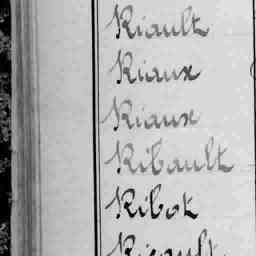 Riault
Riaux
Riaux
Ribault
Ribot